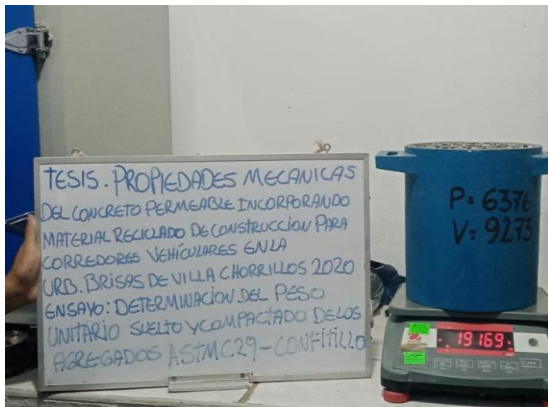 TESIS. PROPIEDADES MECANICAS
DEL CONCRETO PERMEABLE INCORPORANDO
MATERIAL RECICLADO DE CONSTRUCCION PARA
CORREDORES VEHÍCULARES EN LA
URB. BRISAS DE VILLA CHORRILLOS 2020
ENSAYO: DETERMINACION DEL PESO
UNITARIO SUELTO Y COMPACTADO DE LOS
AGREGADOS ASTM C29 - CONFITILLO
P: 6376
V: 9273
19169